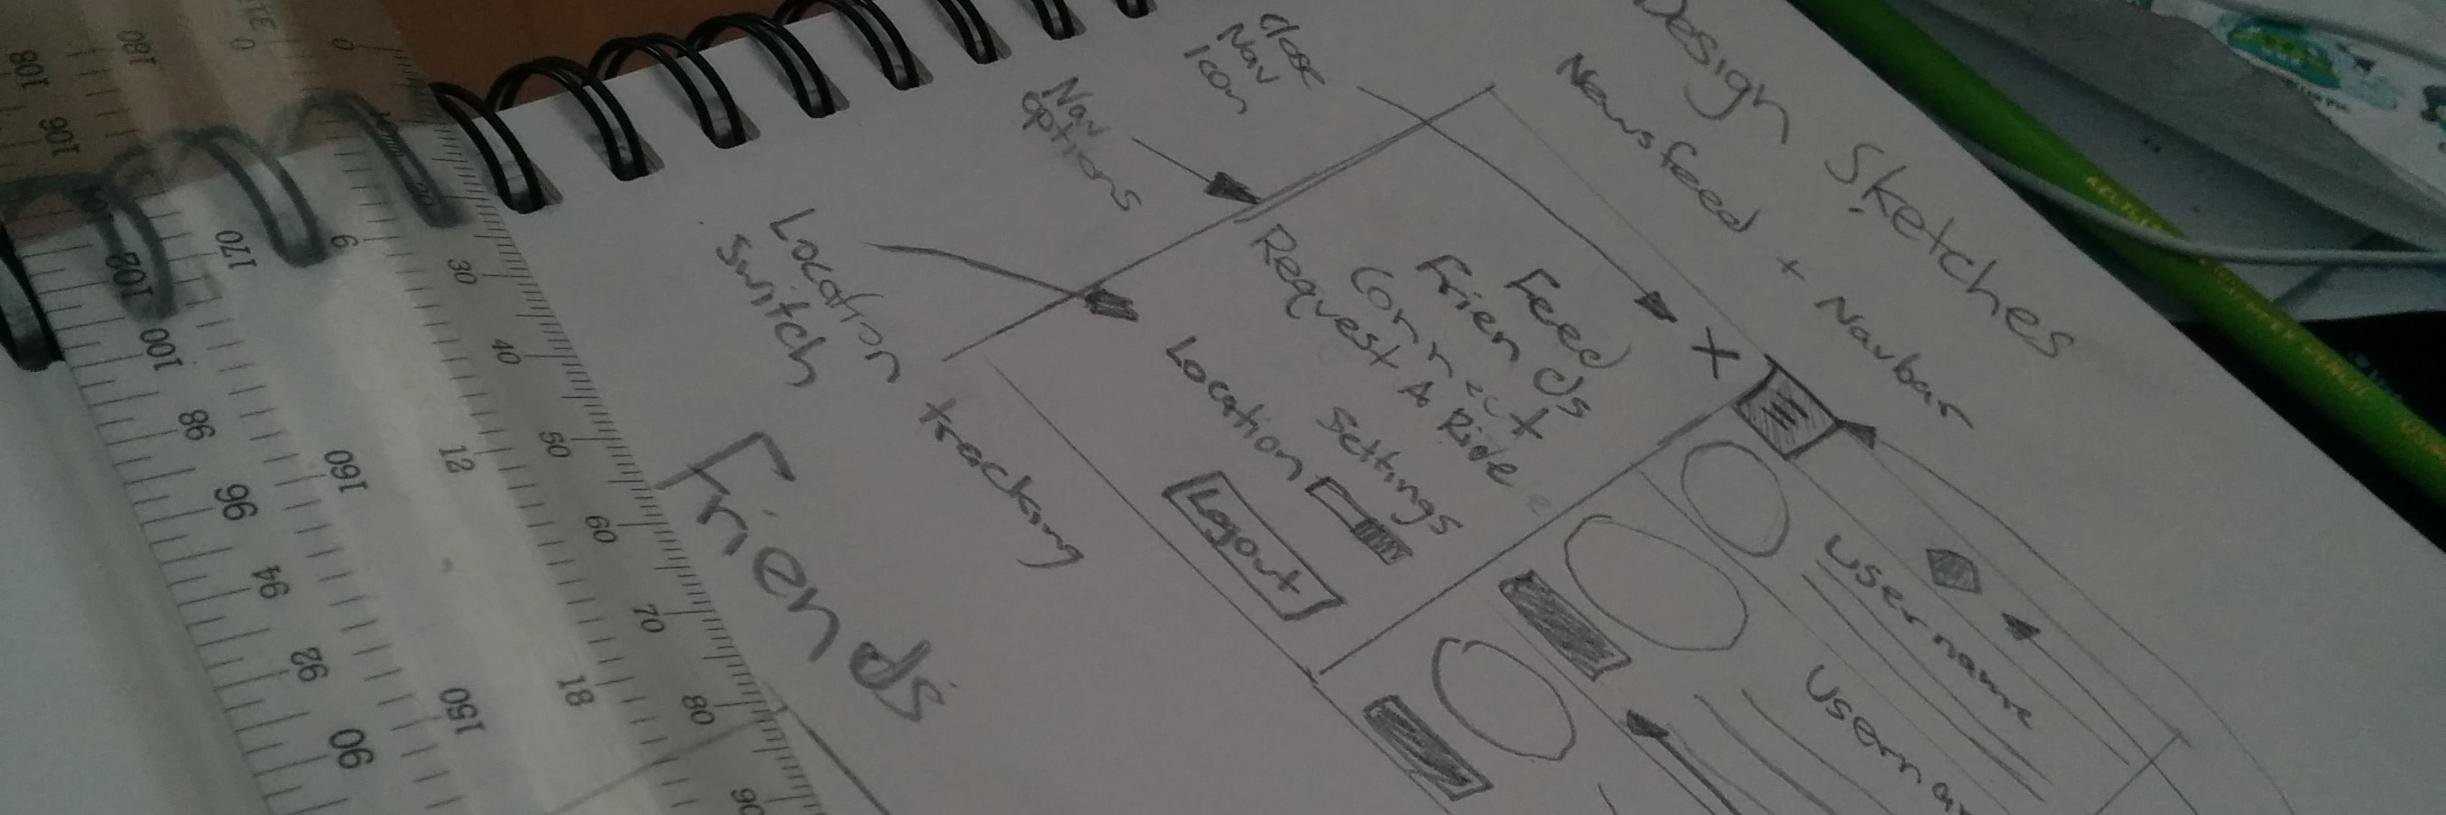 Design Sketches
Newsfeed + Navbar
Close
Nav
Icon
Nav
options
Location tracking
switch
X
Feed
Friends
Connect
Request A Ride
Settings
Location
Logout
Username
Userna
Friends
0
0
6
12
18
20
30
40
50
60
70
80
90
180
170
160
150
108
106
102
100
98
96
94
92
90